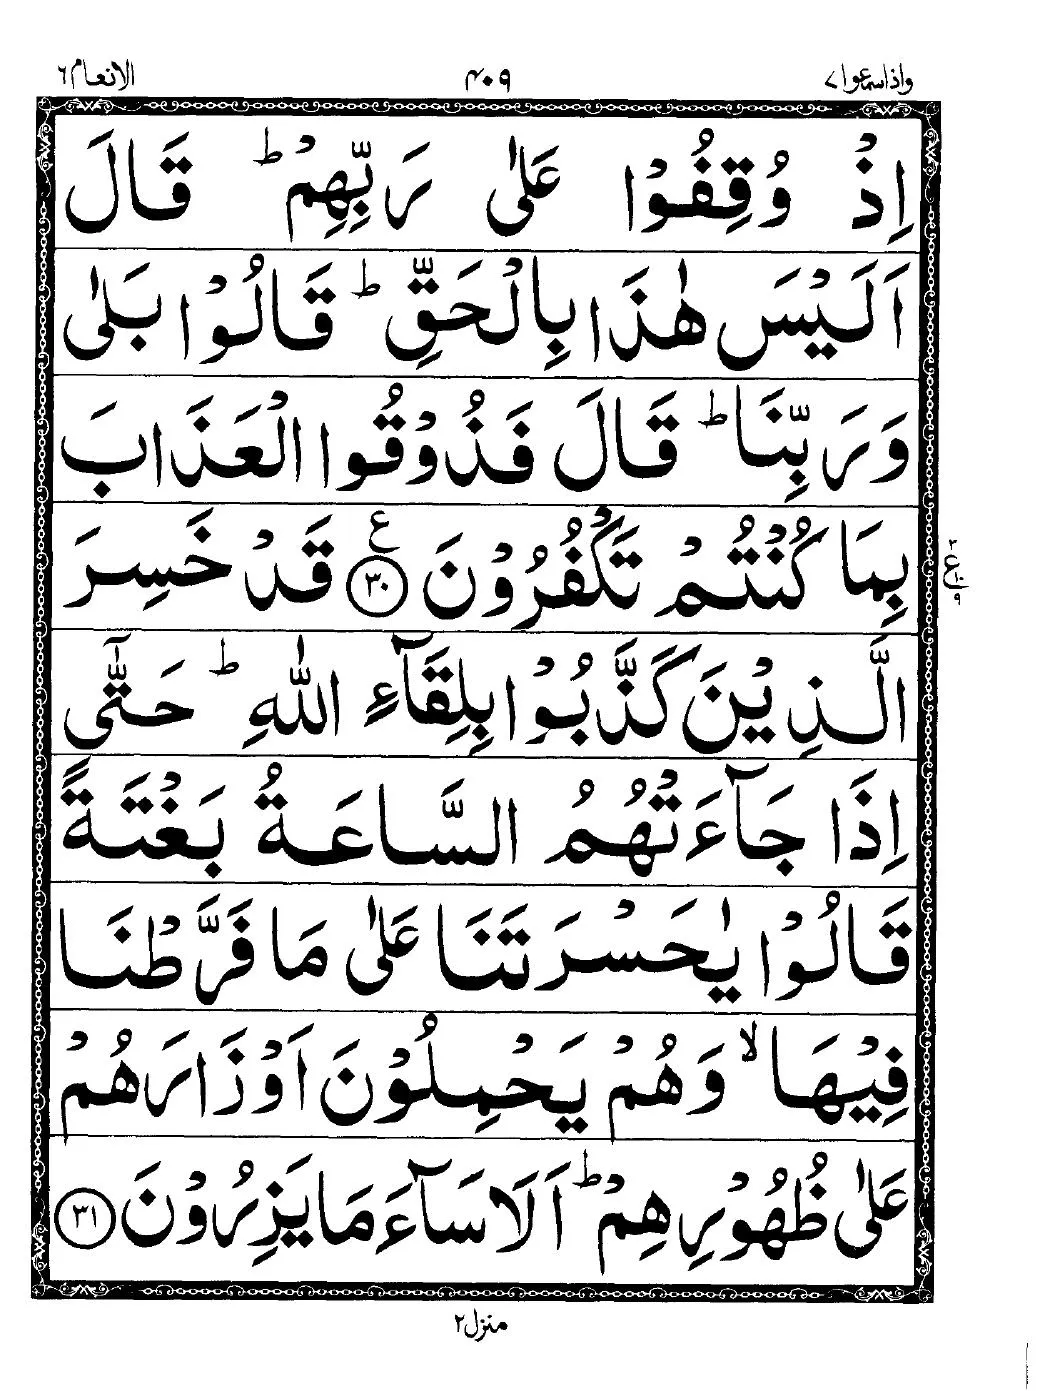 الانعام ٦ ٤٠٩ واذاسمعوا ٧
اِذْ وُقِفُوْا عَلٰى رَبِّهِمْ ؕ قَالَ
اَلَيْسَ هٰذَا بِالْحَقِّ ؕ قَالُوْا بَلٰى
وَرَبِّنَا ؕ قَالَ فَذُوْقُوا الْعَذَابَ
بِمَا كُنْتُمْ تَكْفُرُوْنَ ع ٣٠ قَدْ خَسِرَ
ع
٣
١٠
٩
الَّذِيْنَ كَذَّبُوْا بِلِقَآءِ اللّٰهِ ؕ حَتّٰٓى
اِذَا جَآءَتْهُمُ السَّاعَةُ بَغْتَةً
قَالُوْا يٰحَسْرَتَنَا عَلٰى مَا فَرَّطْنَا
فِيْهَا ۙ وَهُمْ يَحْمِلُوْنَ اَوْزَارَهُمْ
عَلٰى ظُهُوْرِهِمْ ؕ اَلَا سَآءَ مَا يَزِرُوْنَ ٣١
منزل ٢